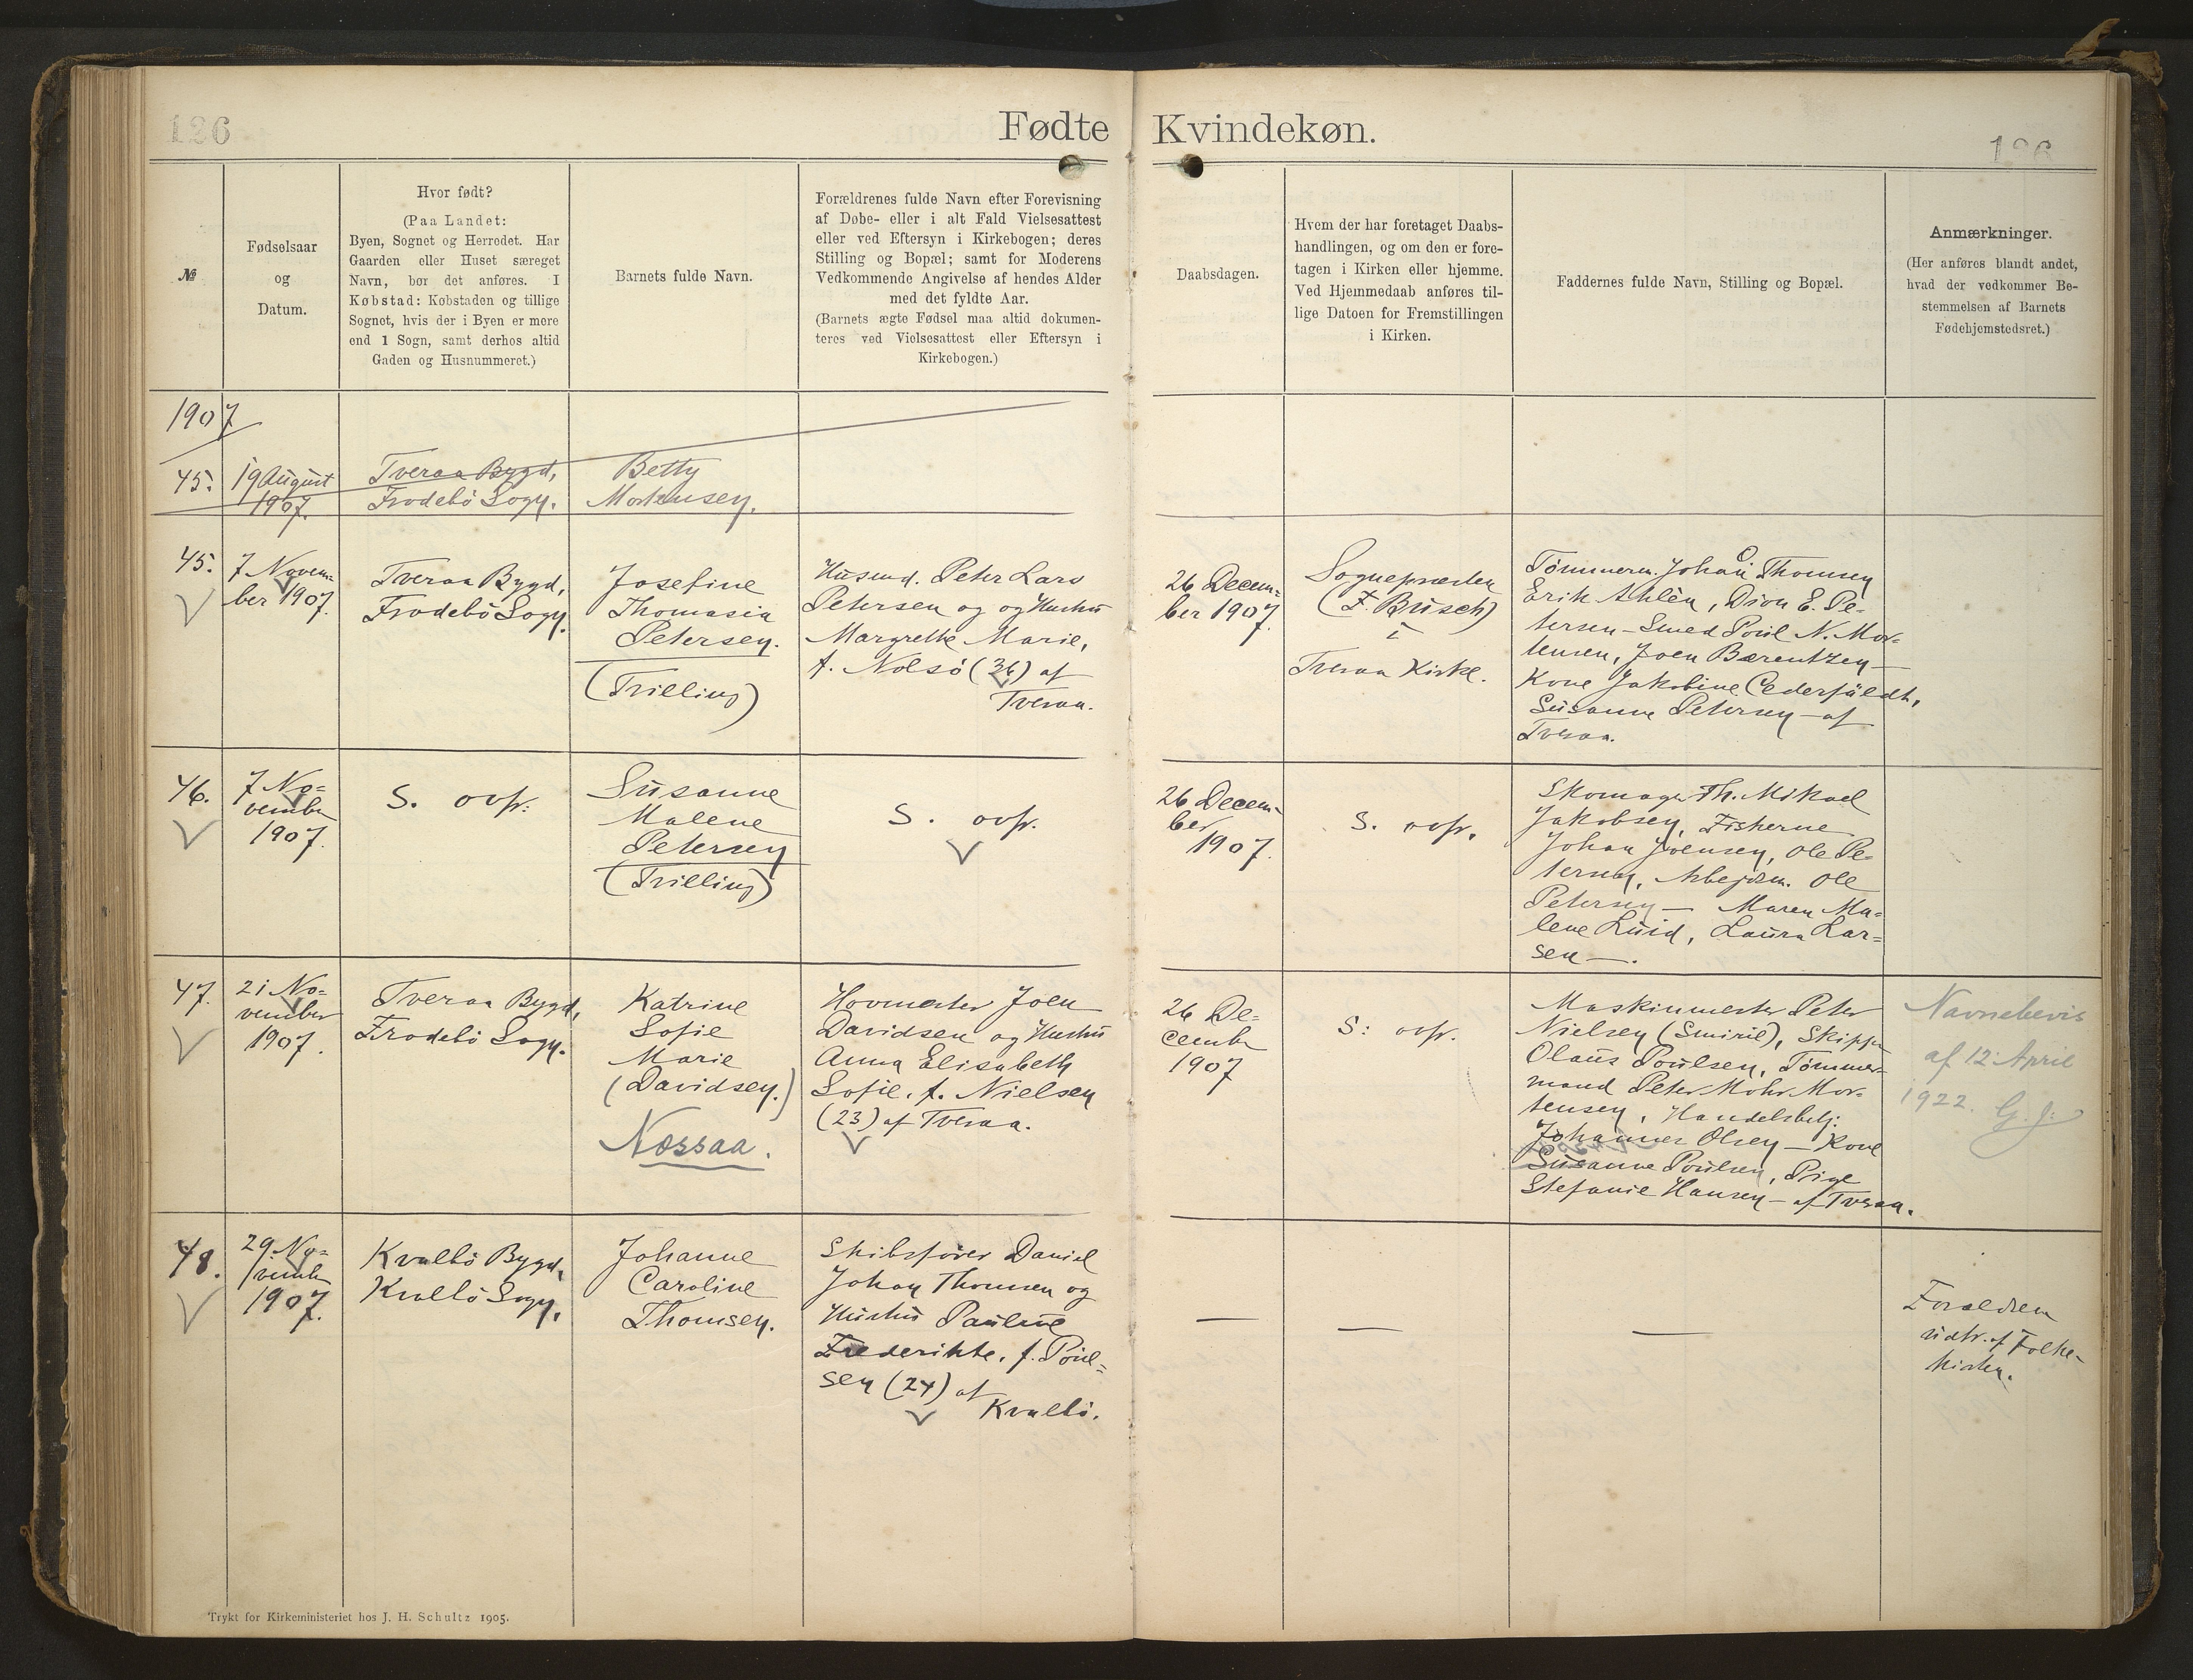 126
Fødte
Kvindekøn.
126
№
Fødselsaar
og
Datum.
Hvor født?
(Paa Landet:
Byen, Sognet og Herredet. Har
Gaarden eller Huset særeget
Navn, bør det anføres. I
Købstad: Købstaden og tillige
Sognet, hvis der i Byen er mere
end 1 Sogn, samt derhos altid
Gaden og Husnummeret.)
Barnets fulde Navn.
Forældrenes fulde Navn efter Forevisning
af Døbe- eller i alt Fald Vielsesattest
eller ved Eftersyn i Kirkebogen; deres
Stilling og Bopæl; samt for Moderens
Vedkommende Angivelse af hendes Alder
med det fyldte Aar.
(Barnets ægte Fødsel maa altid dokumen-
teres ved Vielsesattest eller Eftersyn i
Kirkebogen.)
Daabsdagen.
Hvem der har foretaget Daabs-
handlingen, og om den er fore-
tagen i Kirken eller hjemme.
Ved Hjemmedaab anføres til-
lige Datoen for Fremstillingen
i Kirken.
Faddernes fulde Navn, Stilling og Bopæl.
Anmærkninger.
(Her anføres blandt andet,
hvad der vedkommer Be-
stemmelsen af Barnets
Fødehjemstedsret.)
1907
45.
19 August
1907.
Tveraa Bygd,
Frodebö Sogn.
Betty
Mortensen.
45.
7 Novem-
ber 1907.
Tveraa Bygd,
Frodebö Sogn.
Josefine
Thomasia
Petersen.
(Trilling)
Husmd. Peter Lars
Petersen og og Hustru
Margrethe Marie,
f. Nolsö (36) af
Tveraa.
26 Decem-
ber 1907.
Sognepræsten
(F. Busch)
i
Tveraa Kirke.
Tömmerm. Johan Thomsen
Erik Ahlèn, Dion E. Pe-
tersen - Smed Poul N. Mor-
tensen, Joen Bærentzen -
Kone Jakobine Cederfüldt,
Susanne Petersen - af
Tveraa.
46.
7 No-
vember
1907.
S. ovfr:
Susanne
Malene
Petersen
(Trilling)
S. ovfr.
26 Decem-
ber
1907.
S. ovfr.
Skomager Th. Mikael
Jakobsen, Fiskerne
Johan Joensen, Ole Pe-
tersen, Arbejdsm. Ole
Petersen - Maren Ma-
lene Luid, Laura Lar-
sen -.
47.
21 No-
vember
1907.
Tveraa Bygd,
Frodebö Sogn.
Katrine
Sofie
Marie
(Davidsen.)
Næssaa.
Hovmester Joen
Davidsen og Hustru
Anna Elisabeth
Sofie, f. Nielsen
(23) af Tveraa.
26 De-
cember
1907
S: ovfr.
Maskinmester Peter
Nielsen (Smiril), Skipper
Olaus Poulsen, Tömmer-
mand Peter Mohr Mor-
tensen, Handelsbetj.
Johannes Olsen - Kone
Susanne Poulsen, Pige
Stefanie Hansen - af Tveraa.
Navnebevis
af 12 April
1922. G. J.
48.
29 No-
vember
1907.
Kvalbö Bygd,
Kvalbö Sogn.
Johanne
Caroline
Thomsen.
Skibsfører Daniel
Johan Thomsen og
Hustru Pauline
Frederikke, f. Poul-
sen (24) af
Kvalbö.
—
—
—
Forældrene
udtr. af Folke-
kirken.
Trykt for Kirkeministeriet hos J. H. Schultz 1905.